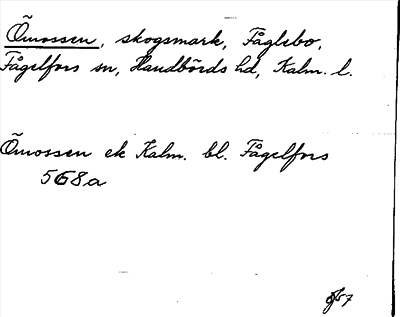 Ömossen, skogsmark, Fåglebo,
Fågelfors sn, Handbörds hd, Kalm. l.
Ömossen ek Kalm. bl. Fågelfors
568a